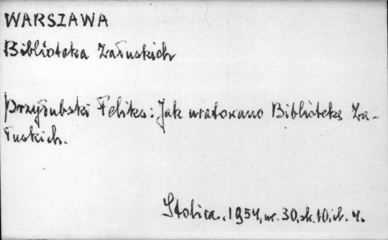 WARSZAWA
Biblioteka Załuskich
Przyłubski Feliks: Jak uratowano Bibliotekę Za-
łuskich.
Stolica, 1954, nr. 30, sk. 10, il. 4.